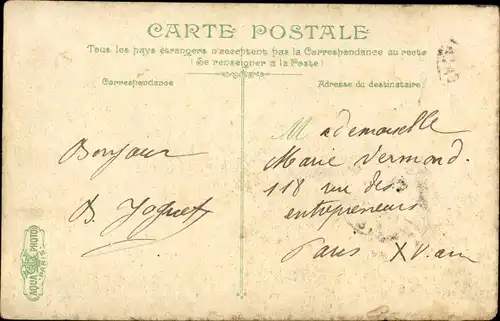 CARTE POSTALE
Tous les pays étrangers n'acceptent pas la Correspondance au recto
(Se renseigner à la Poste)
Correspondance
Adresse du destinataire
Bonjour
B.
Mademoiselle
Marie Vermond.
118 rue des
entrepreneurs
Paris XV
AQUA PHOTO
PARIS